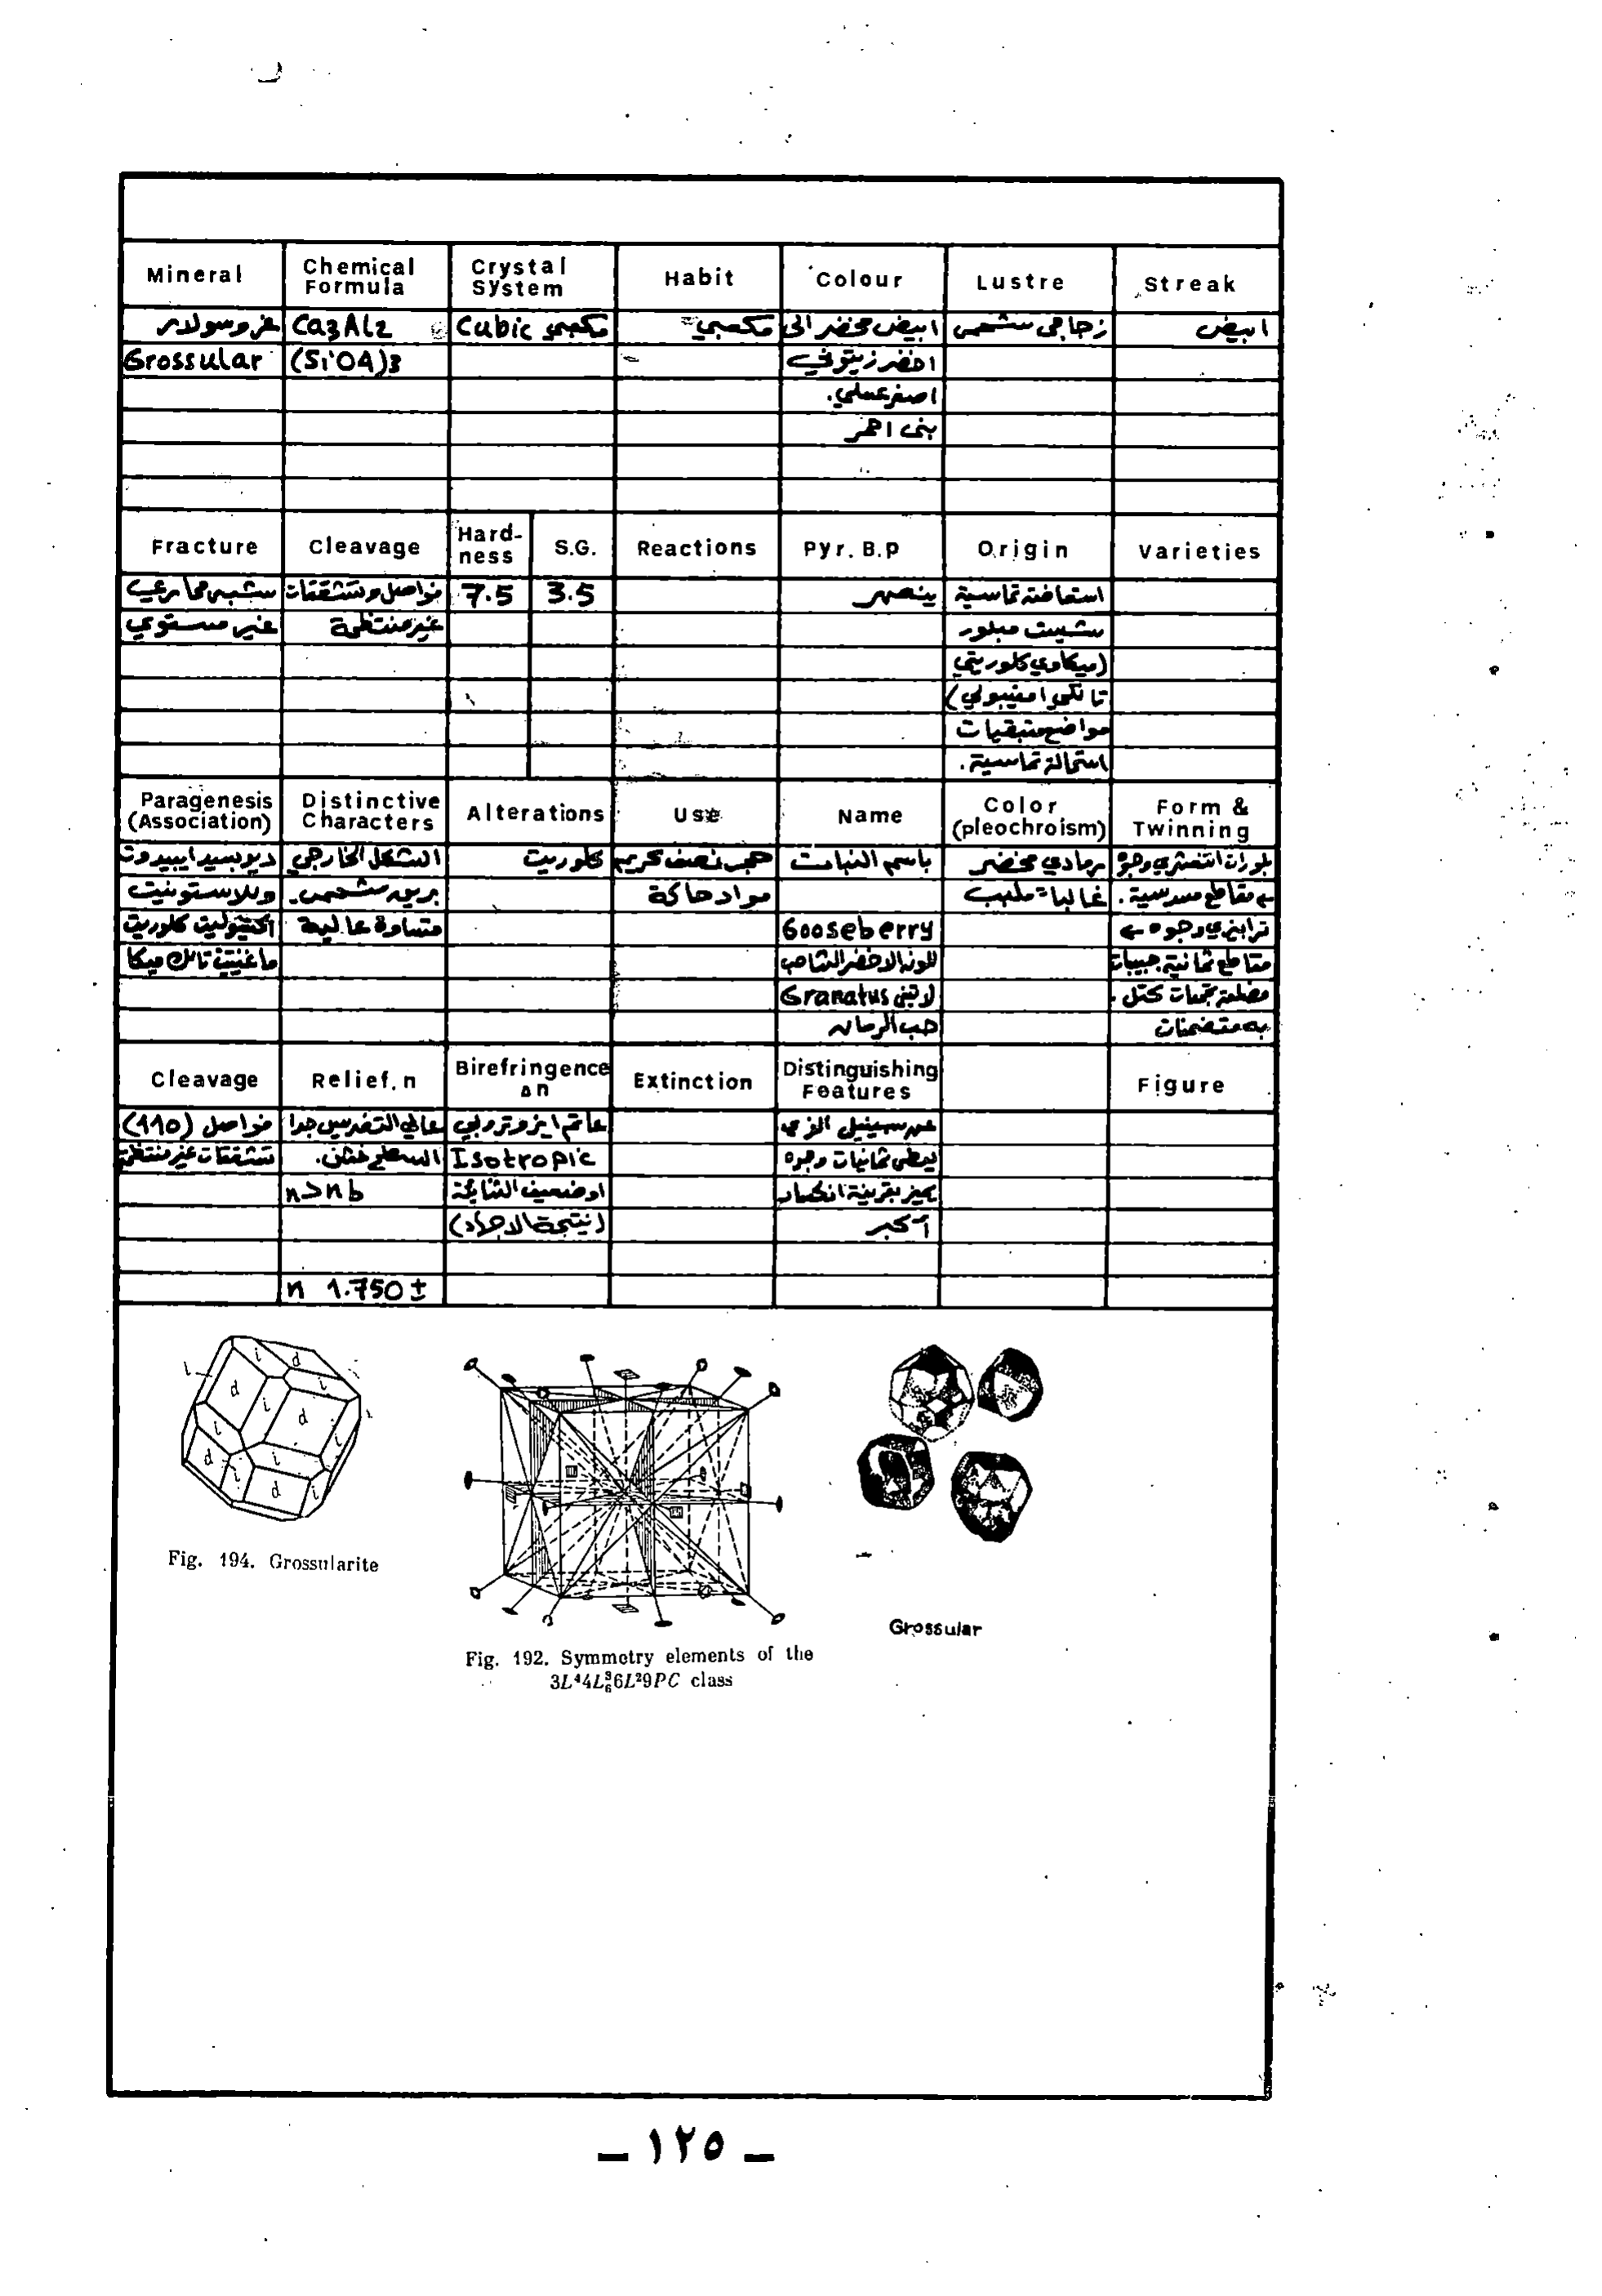 Mineral | Chemical Formula | Crystal System | Habit | Colour | Lustre | Streak
غروسولار | Ca3Al2 | Cubic مكعبي | مكعبي | ابيض مخضر الى | زجاجي شحمي | ابيض
Grossular | (SiO4)3 | اخضر زيتوني
اصفر عسلي.
بني احمر
Fracture | Cleavage | Hard-ness | S.G. | Reactions | Pyr. B.p | Origin | Varieties
شبه محاري | فواصل وتشققات | 7.5 | 3.5 | ينصهر | تماسية
غير مستوي | غير منتظمة | شيست مبلور
(ميكاوي كلوريتي
تالكي امفيبولي)
مواضع
استحالة تماسية.
Paragenesis (Association) | Distinctive Characters | Alterations | Use | Name | Color (pleochroism) | Form & Twinning
ديوبسيد ايبيدوت | الشكل الخارجي | كلوريت | حجر نصف كريم | باسم النبات | رمادي مخضر | بلورات
وللاستونيت | بريق شحمي. | مواد حاكة | غالبا | مقاطع سدسية.
اكتينوليت كلوريت | قساوة عالية | Gooseberry | وجوه
ماغنتيت تالك ميكا | للونه الاخضر الشاحب | مقاطع ثمانية حبيبات
لاتيني Granatus | كتل
حب الرمان | متضمنات
Cleavage | Relief. n | Birefringence Δn | Extinction | Distinguishing Features | Figure
فواصل (110) | عالي التضريس جدا | عاتم ايزوتروبي | عن سبينيل الذي
تشققات غير منتظمة | السطح خشن. | Isotropic | يعطي ثمانيات وجوه
n>nb | او ضعيف | يميز بقرينة انكسار
(نتيجة الاجهاد) | أكبر
n 1.750 ±
l l d l d l l d l l d l l d l
Fig. 194. Grossularite
Fig. 192. Symmetry elements of the
3L⁴4L₆³6L²9PC class
Grossular
– ١٢٥ –